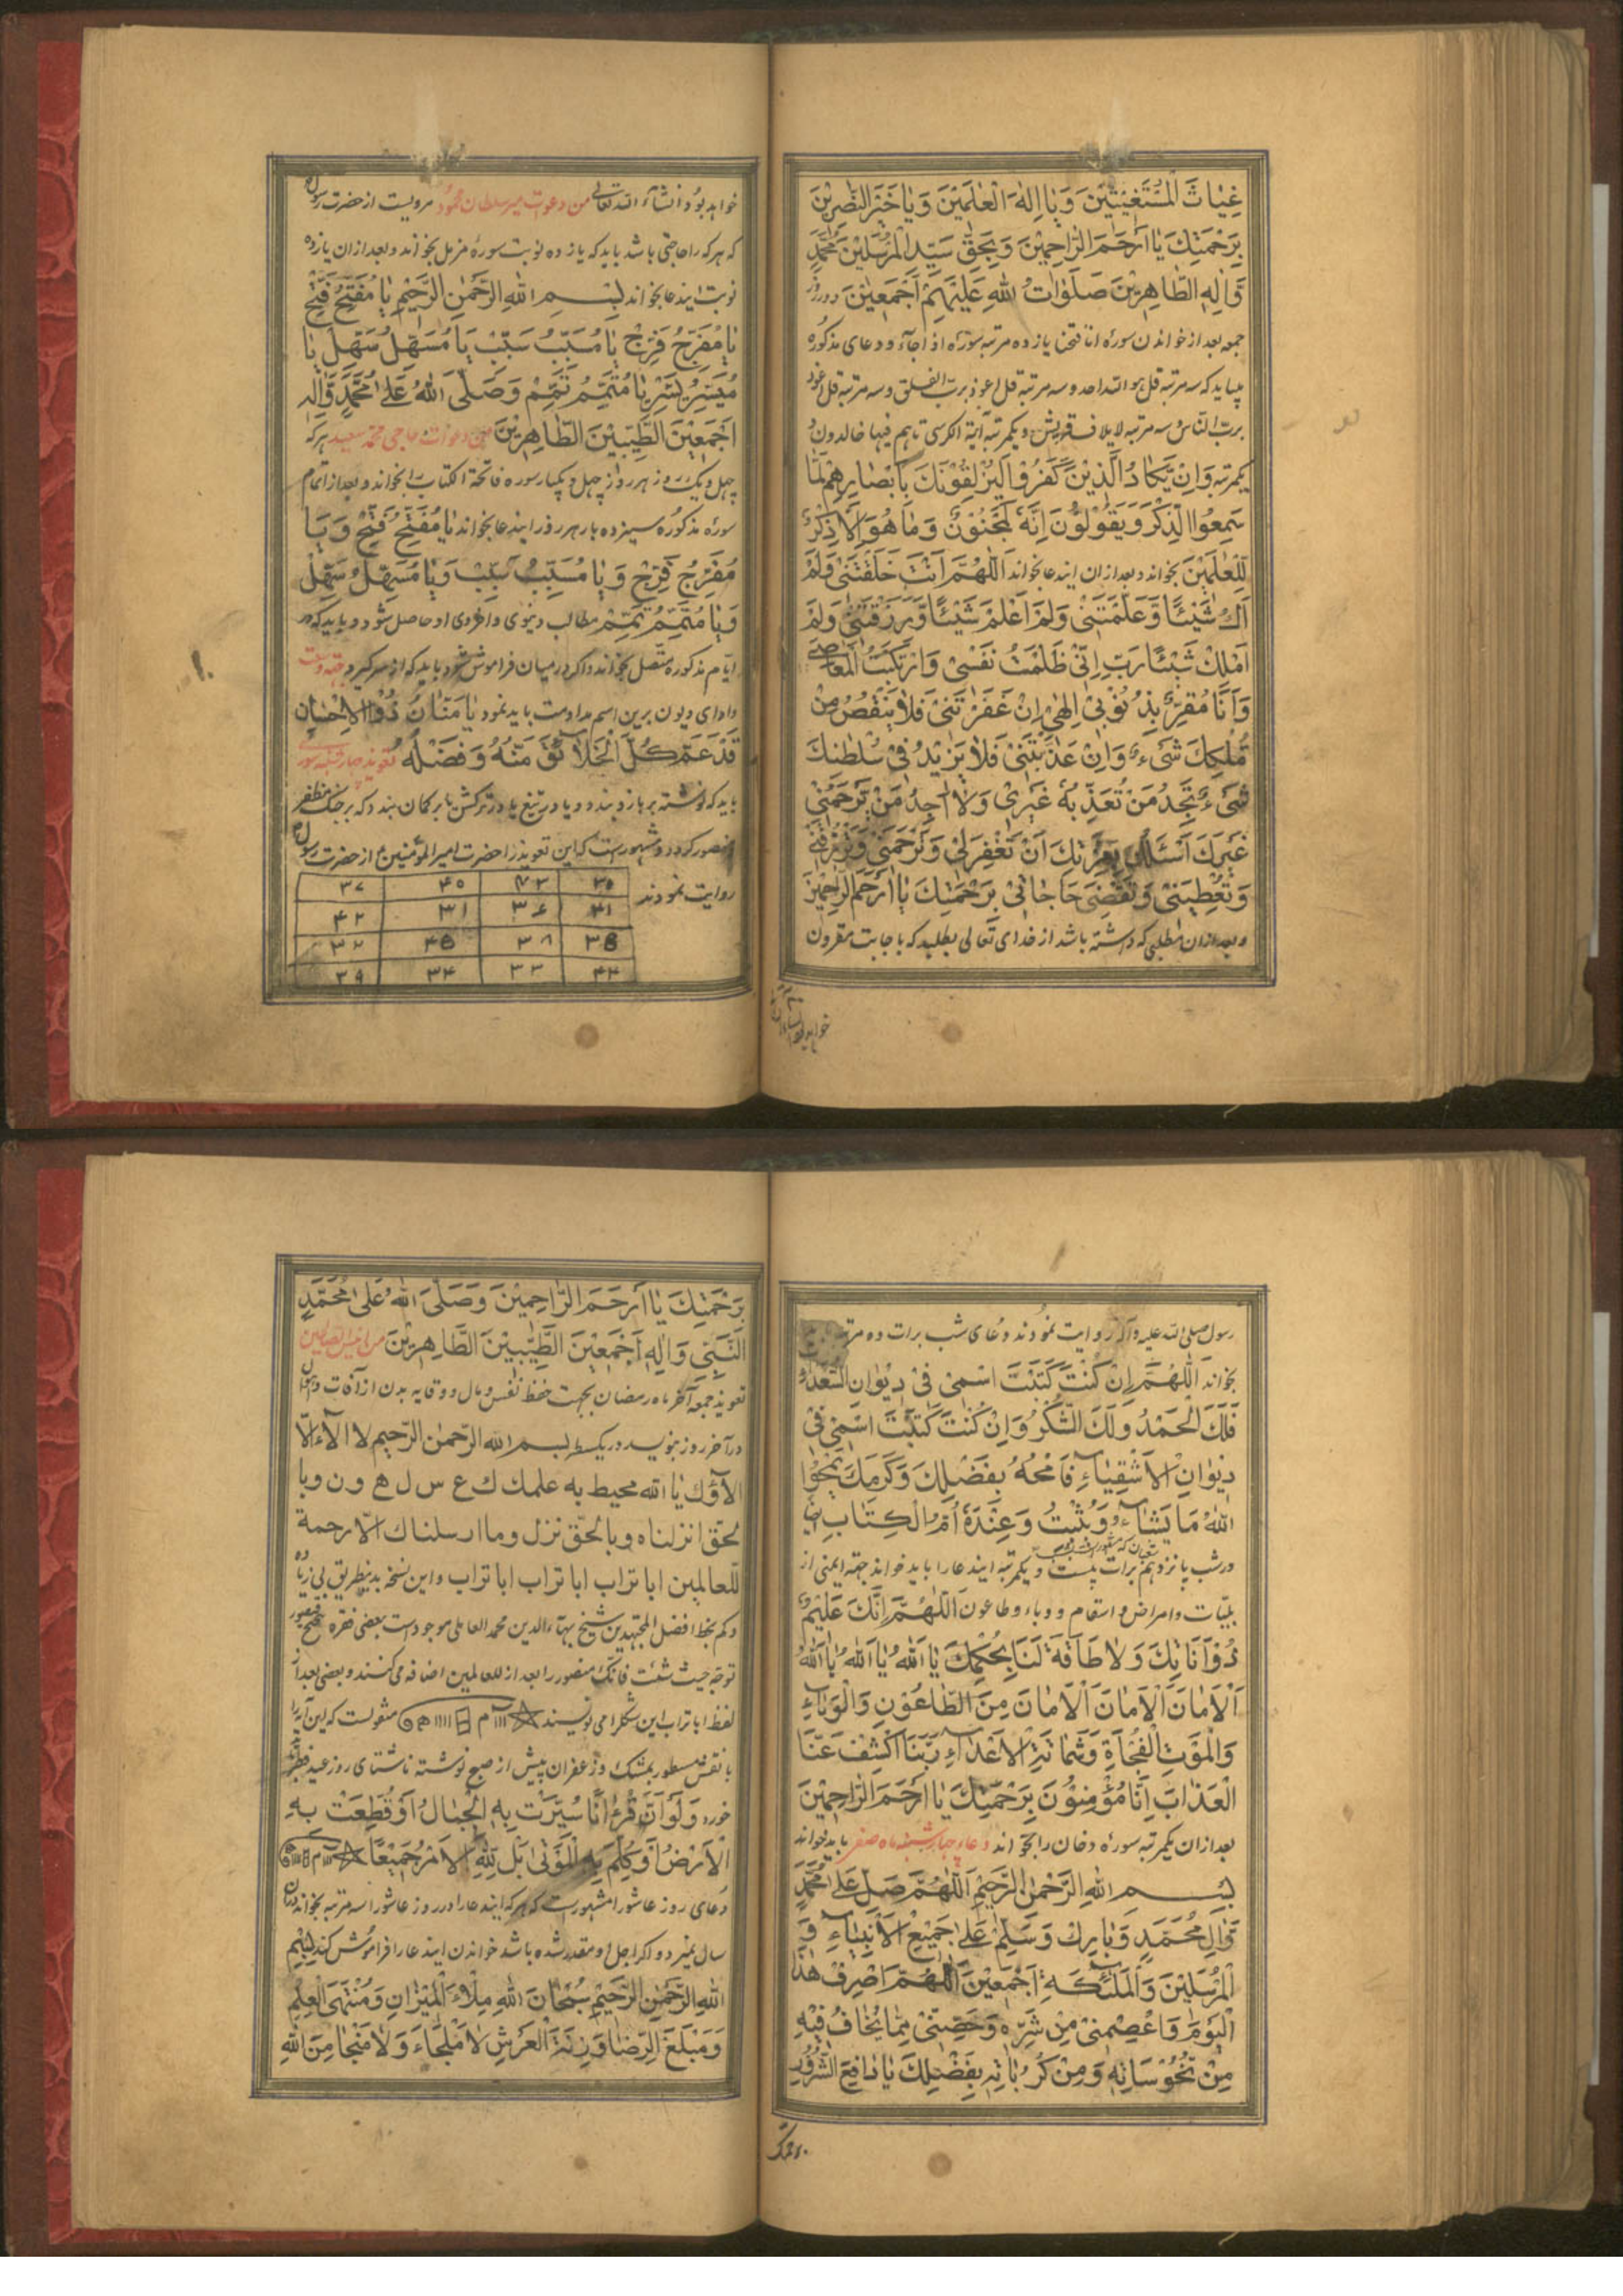 غِیٰاثَ الْمُسْتَغیٖثیٖنَ وَیٰا اِلٰهَ الْعٰلَمیٖنَ وَیٰا خَیْرَ النّٰصِریٖنَ
بِرَحْمَتِكَ یٰا اَرْحَمَ الرّٰاحِمیٖنَ وَبِحَقِّ سَیِّدِ الْمُرْسَلیٖنَ مُحَمَّدٍ
وَّاٰلِهِ الطّٰاهِریٖنَ صَلَوٰاتُ اللهِ عَلَیْهِمْ اَجْمَعیٖنَ و در روز
جمعه بعد از خواندن سورۀ انا فتحنا یازده مرتبه سورۀ اذا جآء و دعای مذکوره
میباید که سه مرتبه قل هو الله احد و سه مرتبه قل اعوذ برب الفلق و سه مرتبه قل اعوذ
برب الناس و سه مرتبه لایلاف قریش و یکمرتبه آیة الکرسی تا هم فیها خالدون و
یکمرتبه وَاِنْ یَّکٰادُ الَّذیٖنَ کَفَرُوْا لَیُزْلِقُوْنَكَ بِاَبْصٰارِهِمْ لَمَّا
سَمِعُوا الذِّکْرَ وَیَقُوْلُوْنَ اِنَّهُ لَمَجْنُوْنٌ وَمٰا هُوَ اِلَّا ذِکْرٌ
لِّلْعٰلَمیٖنَ بخواند و بعد از ان ایندعا بخواند اَللّٰهُمَّ اَنْتَ خَلَقْتَنیٖ وَلَمْ
اَكُ شَیْئًا وَّعَلَّمْتَنیٖ وَلَمْ اَعْلَمْ شَیْئًا وَّرَزَقْتَنیٖ وَلَمْ
اَمْلِكْ شَیْئًا رَبِّ اِنّیٖ ظَلَمْتُ نَفْسیٖ وَارْتَکَبْتُ الْمَعٰاصیٖ
وَاَنَا مُقِرٌّ بِذُنُوْبیٖ اِلٰهیٖ اِنْ غَفَرْتَنیٖ فَلٰا یَنْقُصُ مِنْ
مُلْکِكَ شَیْءٌ وَاِنْ عَذَّبْتَنیٖ فَلٰا یَزیٖدُ فیٖ سُلْطٰنِكَ
شَیْءٌ تَجِدُ مَنْ تُعَذِّبُهُ غَیْریٖ وَلٰا اَجِدُ مَنْ یَرْحَمُنیٖ
غَیْرَكَ اَسْئَلُكَ بِعِزَّتِكَ اَنْ تَغْفِرَلیٖ وَتَرْحَمَنیٖ وَتَرْزُقَنیٖ
وَتُعْطِیَنیٖ وَتَقْضِیَ حٰاجٰاتیٖ بِرَحْمَتِكَ یٰا اَرْحَمَ الرّٰاحِمیٖنَ
و بعد از ان مطلبی که داشته باشد از خدای تعالی بطلبد که باجابت مقرون
خواهد بود انشاء الله تعالی من دعوات میر سلطان محمود مرویست از حضرت رسول
که هر که را حاجتی باشد باید که یازده نوبت سورۀ مزمل بخواند و بعد از ان یازده
نوبت ایندعا بخواند بِسْمِ اللهِ الرَّحْمٰنِ الرَّحیٖمِ یٰا مُفَتِّحُ فَتِّحْ
یٰا مُفَرِّجُ فَرِّجْ یٰا مُسَبِّبُ سَبِّبْ یٰا مُسَهِّلُ سَهِّلْ یٰا
مُیَسِّرُ یَسِّرْ یٰا مُتَمِّمُ تَمِّمْ وَصَلَّی اللهُ عَلیٰ مُحَمَّدٍ وَّاٰلِهِ
اَجْمَعیٖنَ الطَّیِّبیٖنَ الطّٰاهِریٖنَ من دعوات حاجی محمد سعید هر که
چهل و یک روز هر روز چهل و یکبار سوره فاتحة الکتاب را بخواند و بعد از اتمام
سورۀ مذکوره سیزده بار هر روز ایندعا بخواند یٰا مُفَتِّحُ فَتِّحْ وَیٰا
مُفَرِّجُ فَرِّجْ وَیٰا مُسَبِّبُ سَبِّبْ وَیٰا مُسَهِّلُ سَهِّلْ
وَیٰا مُتَمِّمُ تَمِّمْ مطالب دنیوی و اخروی او حاصل شود و باید که در
ایام مذکوره متصل بخواند و اگر در میان فراموش شود باید که از سر گیرد جهة وسعت
و ادای دیون برین اسم مداومت باید نمود یٰا مَنّٰانُ ذُو الْاِحْسٰانِ
قَدْ عَمَّ کُلَّ الْخَلٰائِقِ مَنُّهُ وَفَضْلُهُ تعویذ
باید که نوشته بر بازو بندد و یا در تیغ یا در ترکش یا بر کمان بندد که بر جنگ مظفر
و منصور گردد و مشهور است که این تعویذ را حضرت امیر المومنین از حضرت رسول
روایت نمودند
۳۵ ۴۰ ۳۷
۴۱ ۳۶ ۳۱ ۴۲
۳۸ ۴۵ ۳۲
۴۴ ۳۳ ۳۴ ۳۹
رسول صلی الله علیه و آله روایت نمودند دعای شب برات ده مرتبه
بخواند اَللّٰهُمَّ اِنْ کُنْتَ کَتَبْتَ اسْمیٖ فیٖ دیٖوٰانِ السُّعَدٰاءِ
فَلَكَ الْحَمْدُ وَلَكَ الشُّکْرُ وَاِنْ کُنْتَ کَتَبْتَ اسْمیٖ فیٖ
دیٖوٰانِ الْاَشْقِیٰاءِ فَامْحُهُ بِفَضْلِكَ وَکَرَمِكَ یَمْحُوا
اللهُ مٰا یَشٰاءُ وَیُثْبِتُ وَعِنْدَهُ اُمُّ الْکِتٰابِ ایضا
در شب پانزدهم برات بیست و یکمرتبه ایندعا را باید خواند جهة ایمنی از
بلیّات و امراض و اسقام و وباء و طاعون اَللّٰهُمَّ اِنَّكَ عَلیٖمٌ
ذُوْ اَنٰاتِكَ وَلٰا طٰاقَةَ لَنٰا بِحُکْمِكَ یٰا اَللهُ یٰا اَللهُ یٰا اَللهُ
اَلْاَمٰانَ اَلْاَمٰانَ اَلْاَمٰانَ مِنَ الطّٰاعُوْنِ وَالْوَبٰاءِ
وَالْمَوْتِ الْفُجْاَةِ وَشَمٰاتَةِ الْاَعْدٰاءِ رَبَّنَا اکْشِفْ عَنَّا
الْعَذٰابَ اِنّٰا مُؤْمِنُوْنَ بِرَحْمَتِكَ یٰا اَرْحَمَ الرّٰاحِمیٖنَ
بعد از ان یکمرتبه سورۀ دخان را بخواند دعاء چهارشنبه ماه صفر باید خواند
بِسْمِ اللهِ الرَّحْمٰنِ الرَّحیٖمِ اَللّٰهُمَّ صَلِّ عَلیٰ مُحَمَّدٍ
وَّاٰلِ مُحَمَّدٍ وَبٰارِكْ وَسَلِّمْ عَلیٰ جَمیٖعِ الْاَنْبِیٰاءِ وَ
الْمُرْسَلیٖنَ وَالْمَلٰئِکَةِ اَجْمَعیٖنَ اَللّٰهُمَّ اصْرِفْ هٰذَا
الْیَوْمَ وَاعْصِمْنیٖ مِنْ شَرِّهِ وَحَصِّنّیٖ مِمّٰا یُخٰافُ فیٖهِ
مِنْ نُّحُوْسٰاتِهِ وَمِنْ کُرُبٰاتِهِ بِفَضْلِكَ یٰا دٰافِعَ الشُّرُوْرِ
برحمتک
بِرَحْمَتِكَ یٰا اَرْحَمَ الرّٰاحِمیٖنَ وَصَلَّی اللهُ عَلیٰ مُحَمَّدٍ
النَّبِیِّ وَاٰلِهِ اَجْمَعیٖنَ الطَّیِّبیٖنَ الطّٰاهِریٖنَ
تعویذ جمعه آخر ماه رمضان بجهت حفظ نفس و مال و وقایه بدن از آفات
در آخر روز بنوبسد در یکسطر بسم الله الرّحمٰن الرّحیم لا الآء الّا
الآؤك یا الله محیط به علمك ك ع س ل ه و ن و با
لحقّ انزلناه و بالحقّ نزل وما ارسلناك الّا رحمة
للعالمین اباتراب اباتراب اباتراب و این نسخه بدینطریق بی زیاده
و کم بخط افضل المجتهدین شیخ بهاء الدین محمد العاملی موجود است بعضی فقره
توجّه حیث شئت فانّك منصور را بعد از للعالمین اضافه می کنند و بعضی بعد از
لفظ اباتراب این شکل را می نویسند منقولست که این آیه را
با نقش مسطور بمشک و زعفران پیش از صبح نوشته ناشتای روز عید فطر
خورد وَلَوْ اَنَّ قُرْاٰنًا سُیِّرَتْ بِهِ الْجِبٰالُ اَوْ قُطِّعَتْ بِهِ
الْاَرْضُ اَوْ کُلِّمَ بِهِ الْمَوْتیٰ بَلْ لِلّٰهِ الْاَمْرُ جَمیٖعًا
دعای روز عاشورا مشهور است که هر که ایندعا را در روز عاشورا سه مرتبه بخواند در آن
سال نمیرد و اگر اجل او مقدر شده باشد خواندن ایندعا را فراموش کند بِسْمِ
اللهِ الرَّحْمٰنِ الرَّحیٖمِ سُبْحٰانَ اللهِ مِلْاءَ الْمیٖزٰانِ وَمُنْتَهَی الْعِلْمِ
وَمَبْلَغَ الرِّضٰا وَزِنَةَ الْعَرْشِ لٰا مَلْجَاءَ وَلٰا مَنْجٰا مِنَ اللهِ